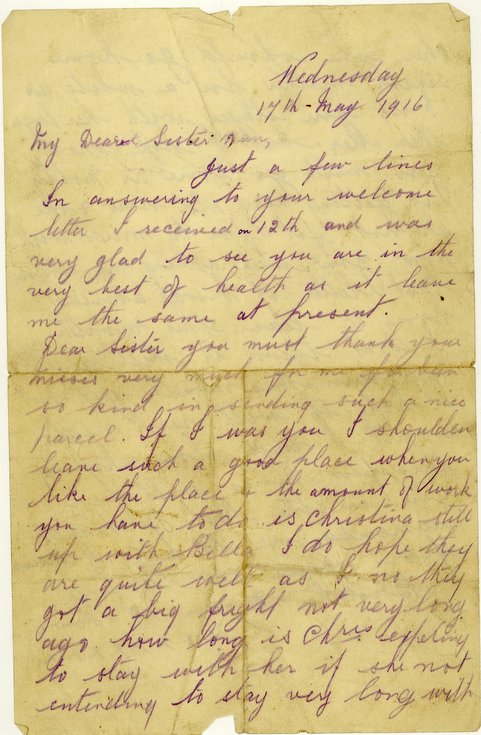 Wednesday
17th May 1916
My Dear Sister
Just a few lines
In answering to your welcome
letter I received on 12th and was
very glad to see you are in the
very best of health as it leave
me the same at present.
Dear Sister you must thank your
misses very much for me for been
so kind in sending such a nice
parcel. If I was you I shoulden
leave such a good place when you
like the place & the amount of work
you have to do is Christina still
up with Bella I do hope they
are quite well as I no they
got a big fright not very long
ago. how long is Chris expeting
to stay with her if she not
entending to stay very long with